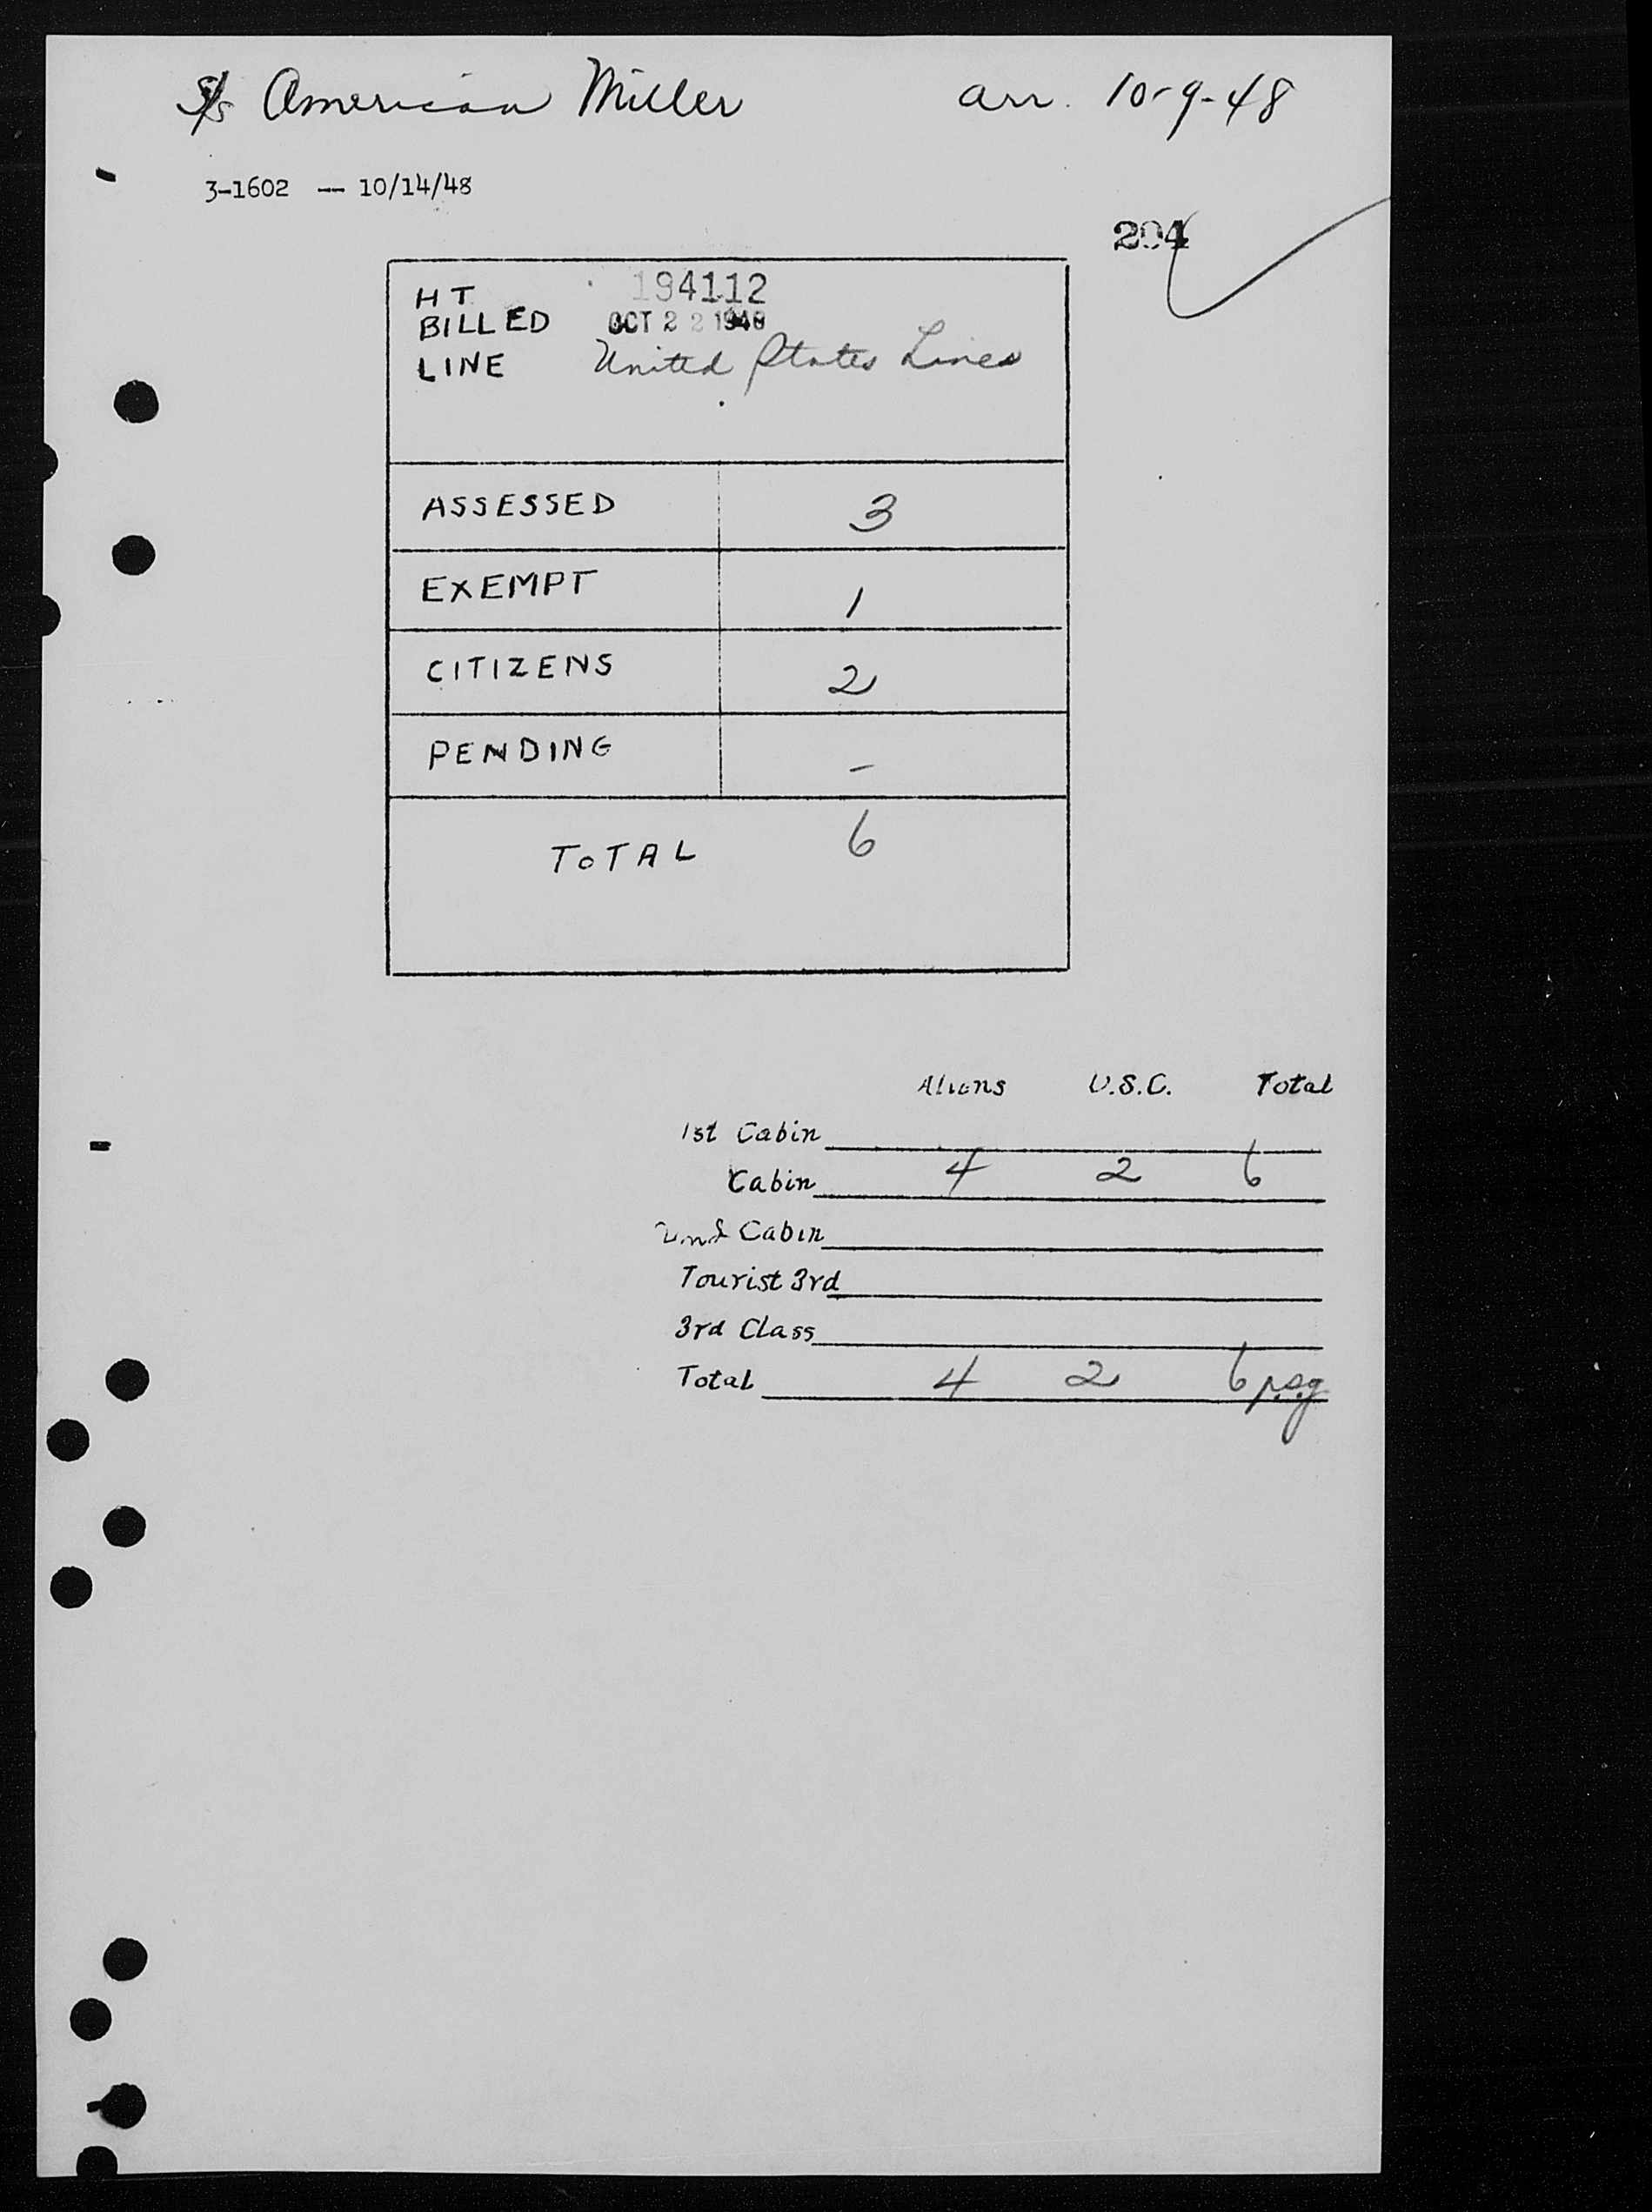 S/s American Miller arr. 10-9-48
3-1602 -- 10/14/48
204
HT 194112
BILLED OCT 22 1948
LINE United States Lines
ASSESSED 3
EXEMPT 1
CITIZENS 2
PENDING –
TOTAL 6
Aliens U.S.C. Total
1st Cabin
Cabin 4 2 6
2nd Cabin
Tourist 3rd
3rd Class
Total 4 2 6 psg